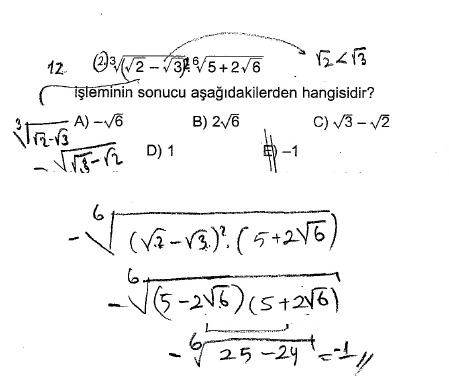 12. (2) ³√(√2 − √3) · ⁶√(5+2√6) √2 < √3
işleminin sonucu aşağıdakilerden hangisidir?
A) −√6 B) 2√6 C) √3 − √2
D) 1 E) −1
³√(√2−√3)
−√(√3−√2)
−⁶√((√2−√3)².(5+2√6))
−⁶√((5−2√6)(5+2√6))
−⁶√(25−24) = −1 //